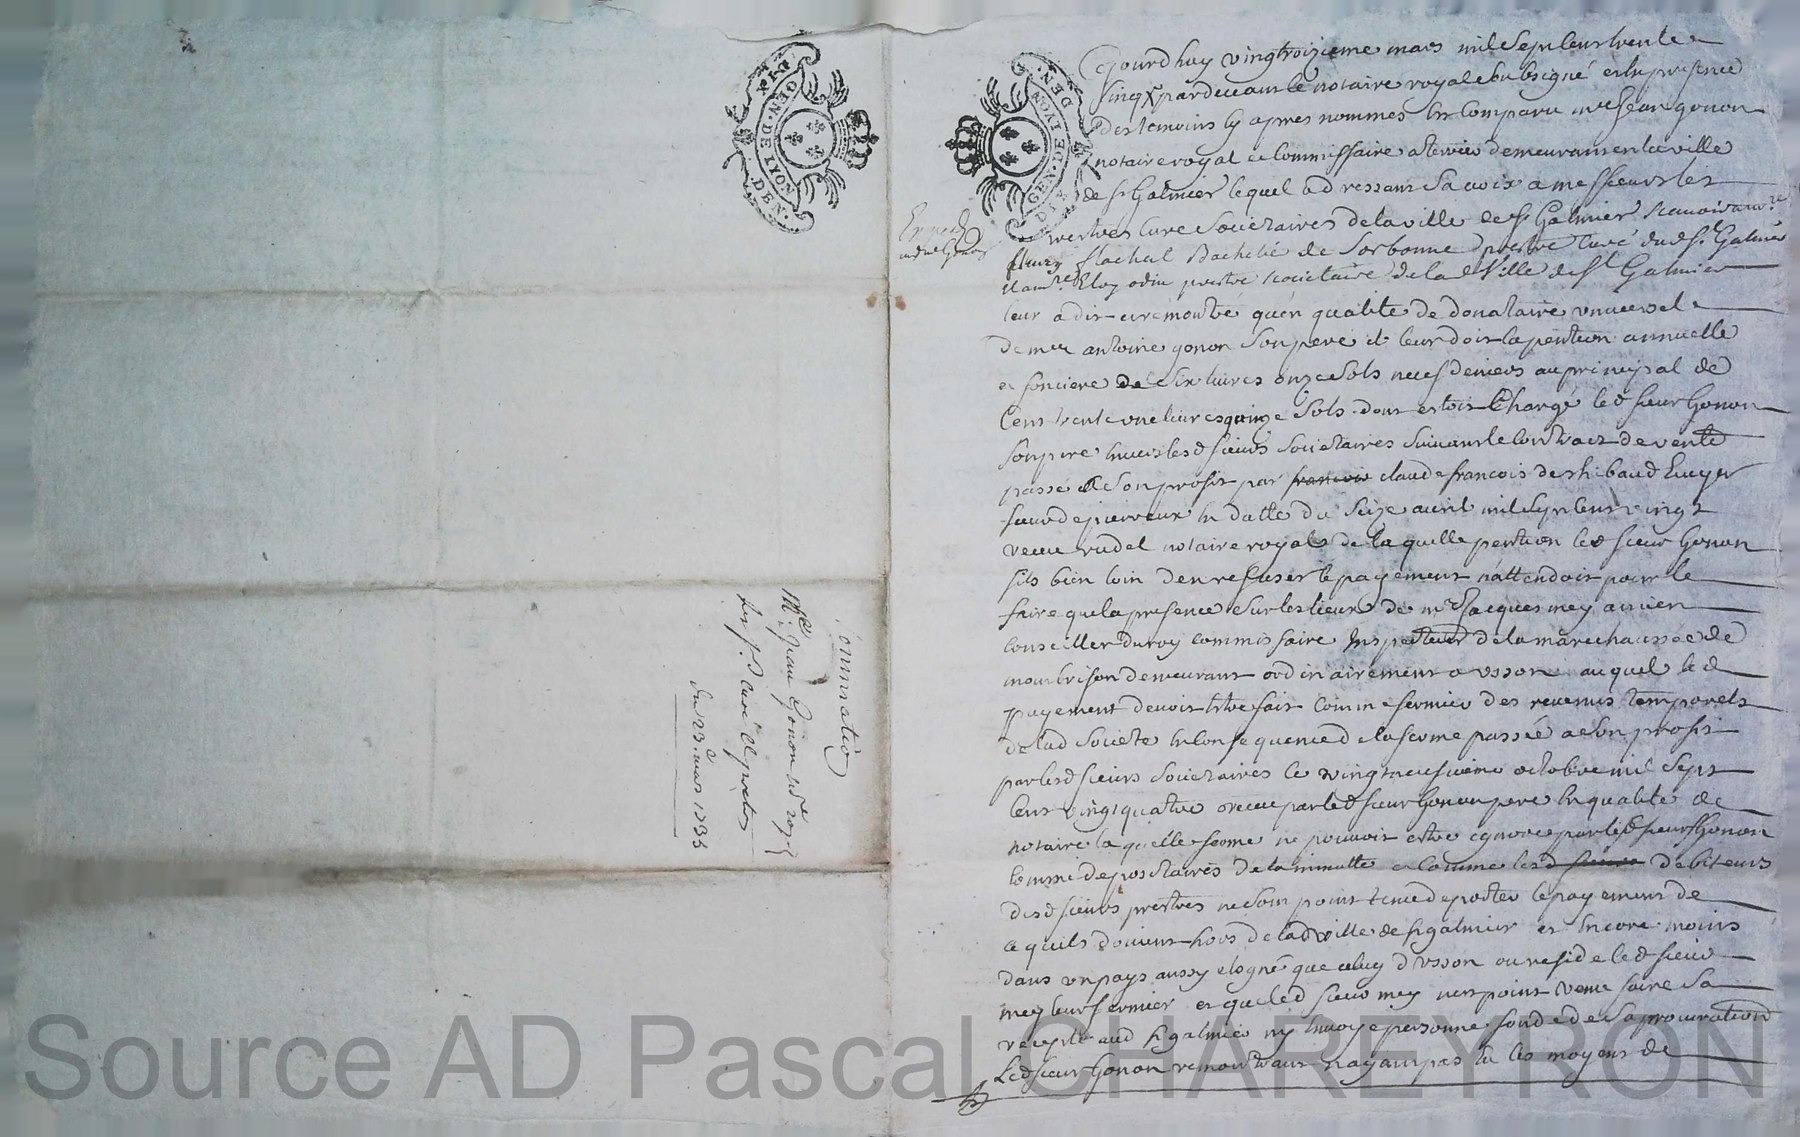 GEN. DE LYON
DEN.
GEN. DE LYON
DEN.
Sommation
Mre Jean Gonon nre royal
Les srs curé et prêtres
du 23e mars 1735
Cejourdhuy vingtroizieme mars mil sept cens trente
cinq pardevant le notaire royal soubsigné en la presence
des temoins cy apres nommes est comparu mre Jean gonon
notaire royal et commissaire a terrier demeurant en la ville
de st Galmier lequel adressant sa voix a messieurs les
prestres curé societaires de la ville de st Galmier scavoir a mre
fleury flachat Bachelié de Sorbonne prestre curé dud st Galmier
et a mre Eloy odin prestre societaire de lad Ville de st Galmier
leur a dit et remontré qu'en qualité de donataire universel
de mre antoine gonon son pere il leur doit la pention annuelle
et fonciere de six livres onze sols neuf deniers au principal de
Cent trente une livres quinze sols dont estoit Chargé led sieur Gonon
son pere envers lesd sieurs societaires suivant le contract de vente
passé a son profit par francois claude francois de thibaud Ecuyer
sieur de pierreux en datte du seize avril mil sept cens vingt
receu rudel notaire royal de la quelle pention led sieur Gonon
fils bien loin den refuser le payement n'attendoit pour le
faire que la presence sur les lieux de mre Jacques mey ancien
conseiller du roy commissaire Inspecteur de la marechaussée de
montbrison demeurant ordinairement a usson auquel led
payement devoit estre fait comme fermier des revenus temporels
de lad societé en consequence de la ferme passée a son profit
par lesd sieurs societaires le vingt neufvieme octobre mil sept
cens vingt quatre receue par led sieur Gonon pere en qualité de
notaire la quelle ferme ne pouvoit estre ignorée par led sieur Gonon
comme depositaires de la minutte et comme lesd sieurs debiteurs
desd sieurs prestres ne sont point tenu de porter le payement de
ce quils doivent hors de lad ville de st galmier et encore moins
dans un pays aussy elogné que celuy d'usson ou reside led sieur
mey leur fermier et que led sieur mey n'est point venu faire sa
recepte aud st galmier ny envoyé personne fondé de sa procuration
Led sieur Gonon remontrant n'ayant pas eu les moyens de
Source AD Pascal CHAREYRON